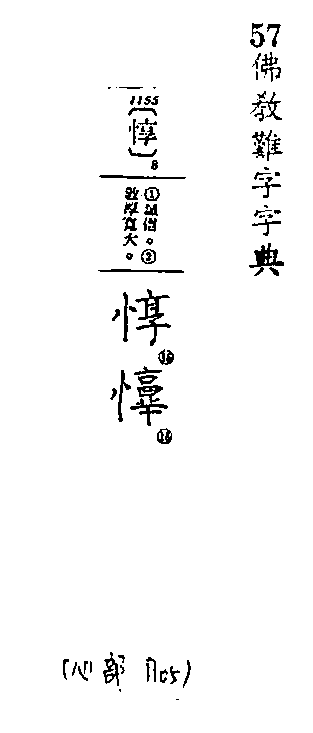 57
佛教難字字典
1155
〔惇〕
8
①誠信。②
敦厚寬大。
惇
⑯
(心部